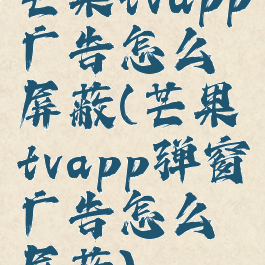 芒果tvapp
广告怎么
屏蔽(芒果
tvapp弹窗
广告怎么
屏蔽)